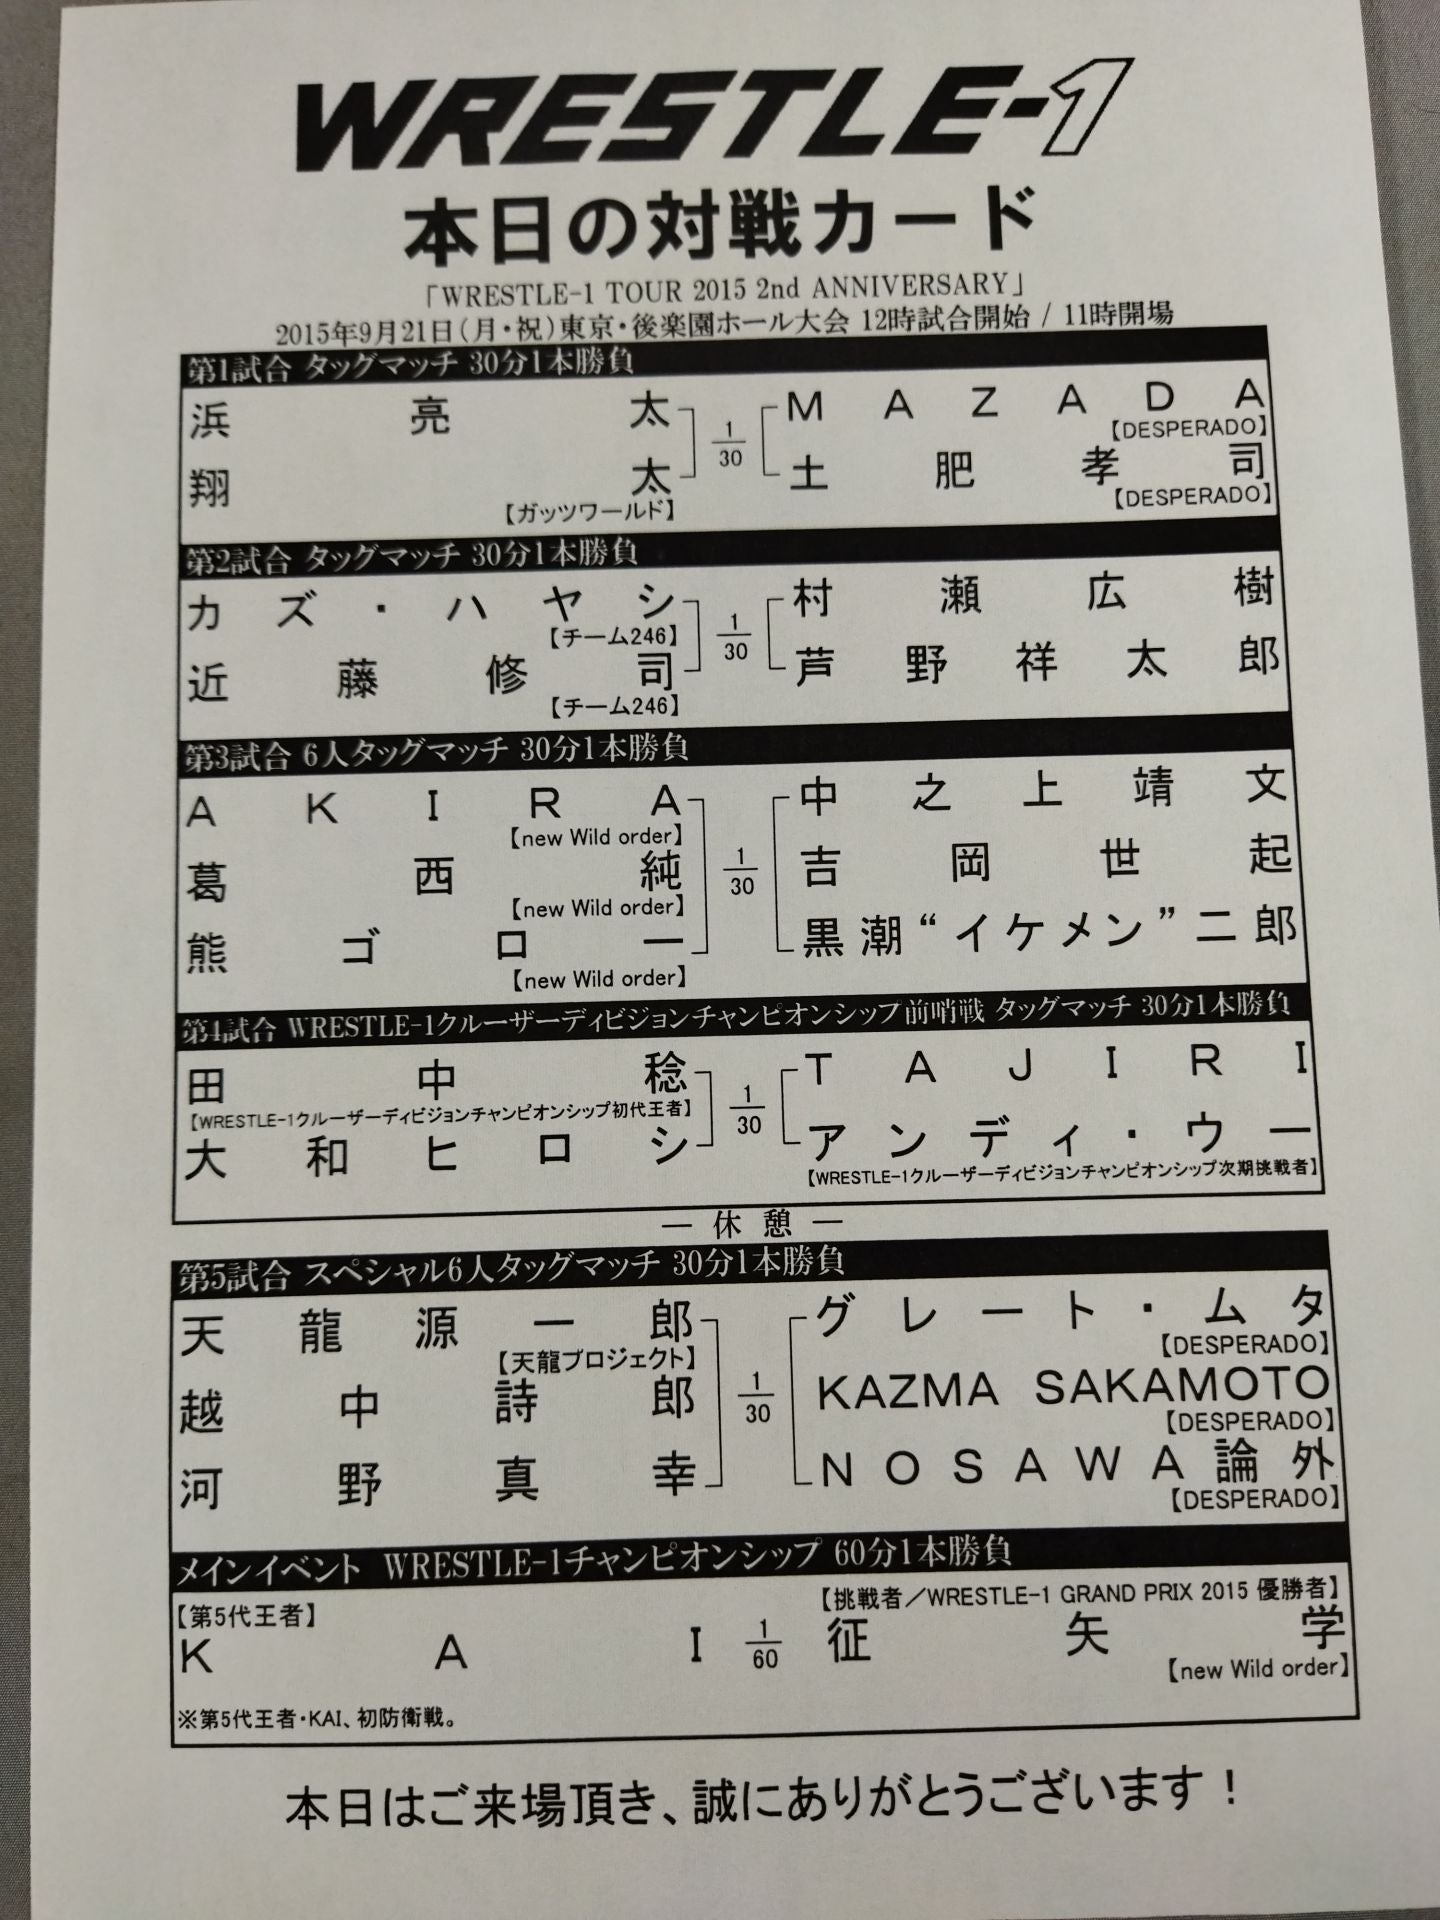 WRESTLE-1
本日の対戦カード
「WRESTLE-1 TOUR 2015 2nd ANNIVERSARY」
2015年9月21日(月・祝)東京・後楽園ホール大会 12時試合開始 / 11時開場
第1試合 タッグマッチ 30分1本勝負
浜亮太 1/30 MAZADA
【DESPERADO】
翔太 土肥孝司
【ガッツワールド】 【DESPERADO】
第2試合 タッグマッチ 30分1本勝負
カズ・ハヤシ 1/30 村瀬広樹
【チーム246】
近藤修司 芦野祥太郎
【チーム246】
第3試合 6人タッグマッチ 30分1本勝負
AKIRA 中之上靖文
【new Wild order】
葛西純 1/30 吉岡世起
【new Wild order】
熊ゴロー 黒潮“イケメン”二郎
【new Wild order】
第4試合 WRESTLE-1クルーザーディビジョンチャンピオンシップ前哨戦 タッグマッチ 30分1本勝負
田中稔 1/30 TAJIRI
【WRESTLE-1クルーザーディビジョンチャンピオンシップ初代王者】
大和ヒロシ アンディ・ウー
【WRESTLE-1クルーザーディビジョンチャンピオンシップ次期挑戦者】
― 休 憩 ―
第5試合 スペシャル6人タッグマッチ 30分1本勝負
天龍源一郎 グレート・ムタ
【天龍プロジェクト】 【DESPERADO】
越中詩郎 1/30 KAZMA SAKAMOTO
【DESPERADO】
河野真幸 NOSAWA論外
【DESPERADO】
メインイベント WRESTLE-1チャンピオンシップ 60分1本勝負
【第5代王者】 【挑戦者／WRESTLE-1 GRAND PRIX 2015 優勝者】
KAI 1/60 征矢学
【new Wild order】
※第5代王者・KAI、初防衛戦。
本日はご来場頂き、誠にありがとうございます！